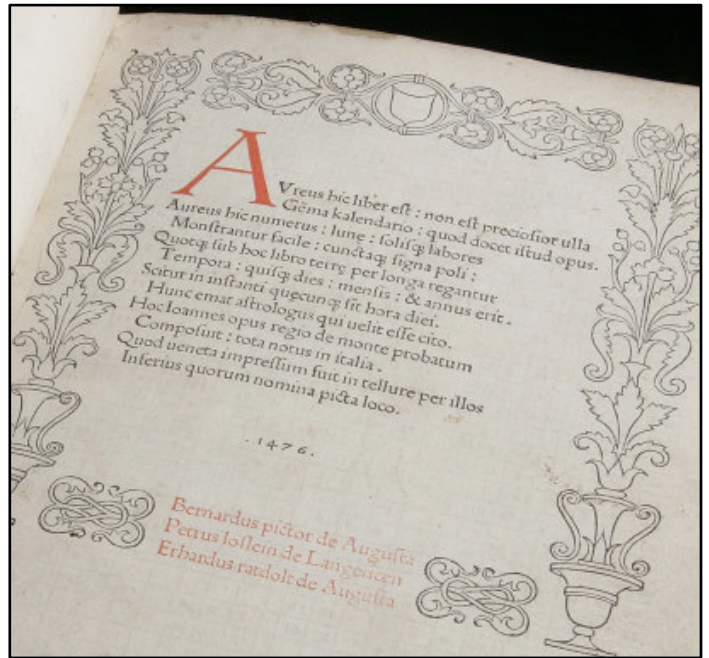 AVreus hic liber est : non est preciosior ulla
Gēma kalendario : quod docet istud opus.
Aureus hic numerus : lunę : solisq; labores
Monstrantur facile : cunctaq; signa poli :
Quotq; sub hoc libro terrę per longa regantur
Tempora : quisq; dies : mensis : & annus erit.
Scitur in instanti quęcunq; sit hora diei.
Hunc emat astrologus qui uelit esse cito.
Hoc Ioannes opus regio de monte probatum
Composuit : tota notus in italia.
Quod ueneta impressum fuit in tellure per illos
Inferius quorum nomina picta loco.
.1476.
Bernardus pictor de Augusta
Petrus loslein de Langencen
Erhardus ratdolt de Augusta